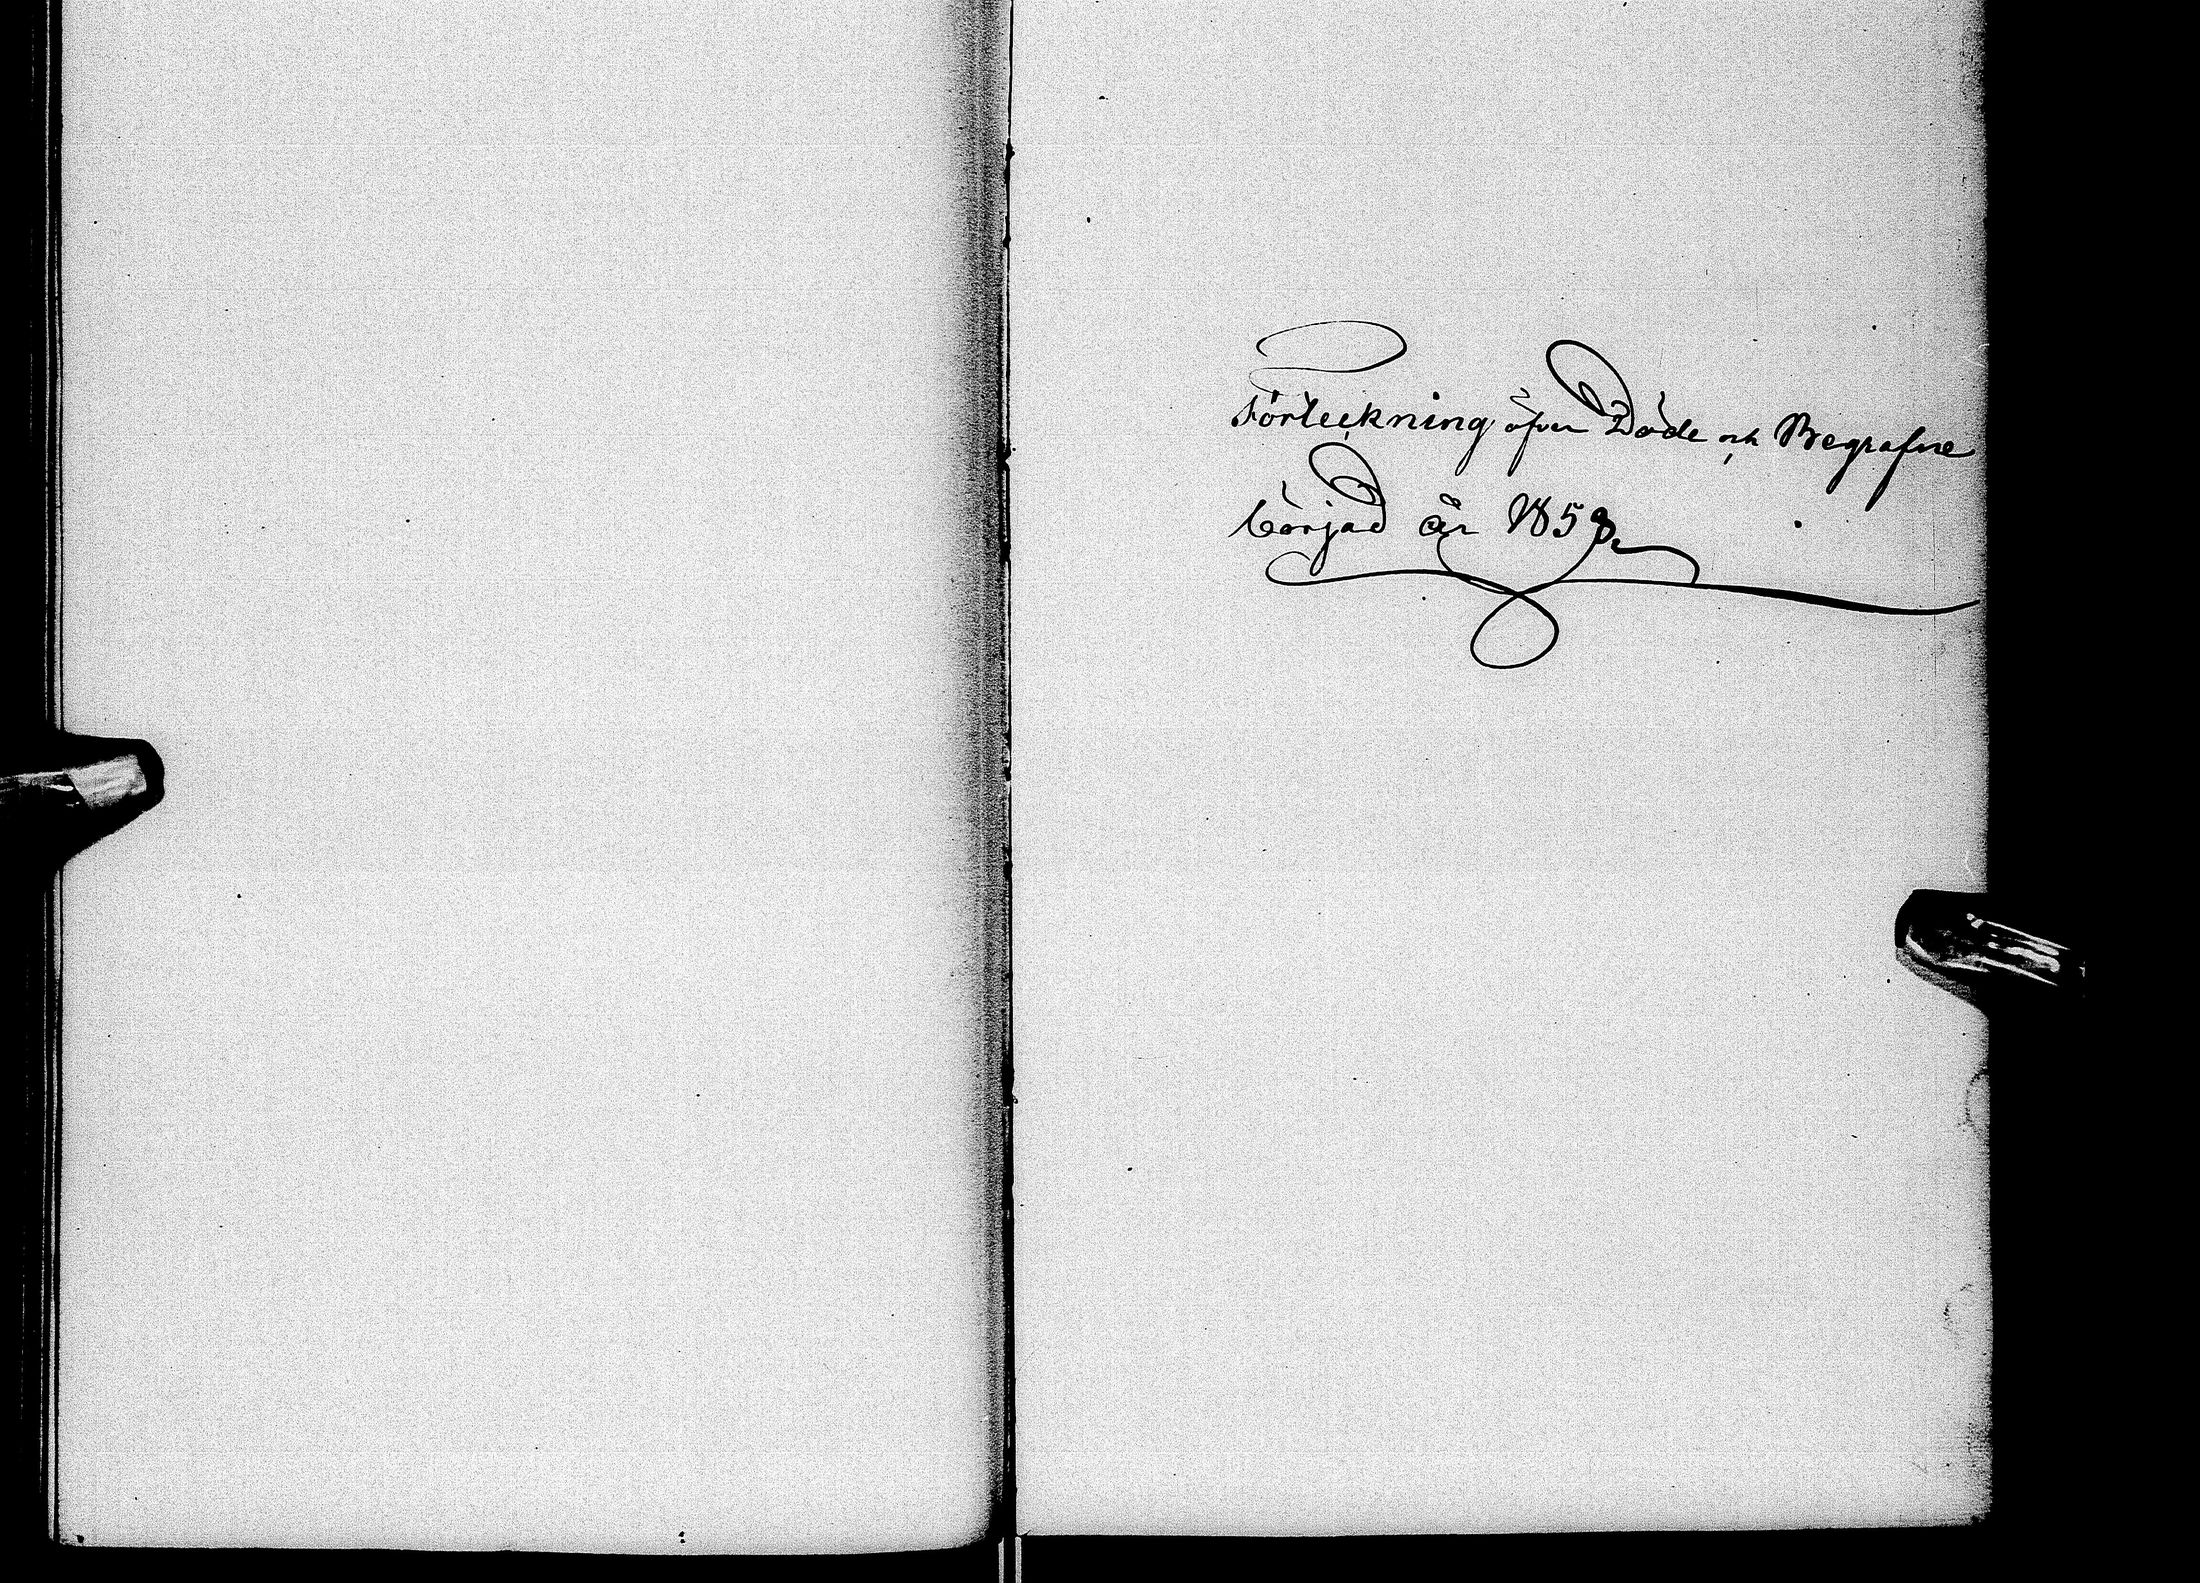 Förteckning öfver Döde och Begrafne
börjad år 1858.